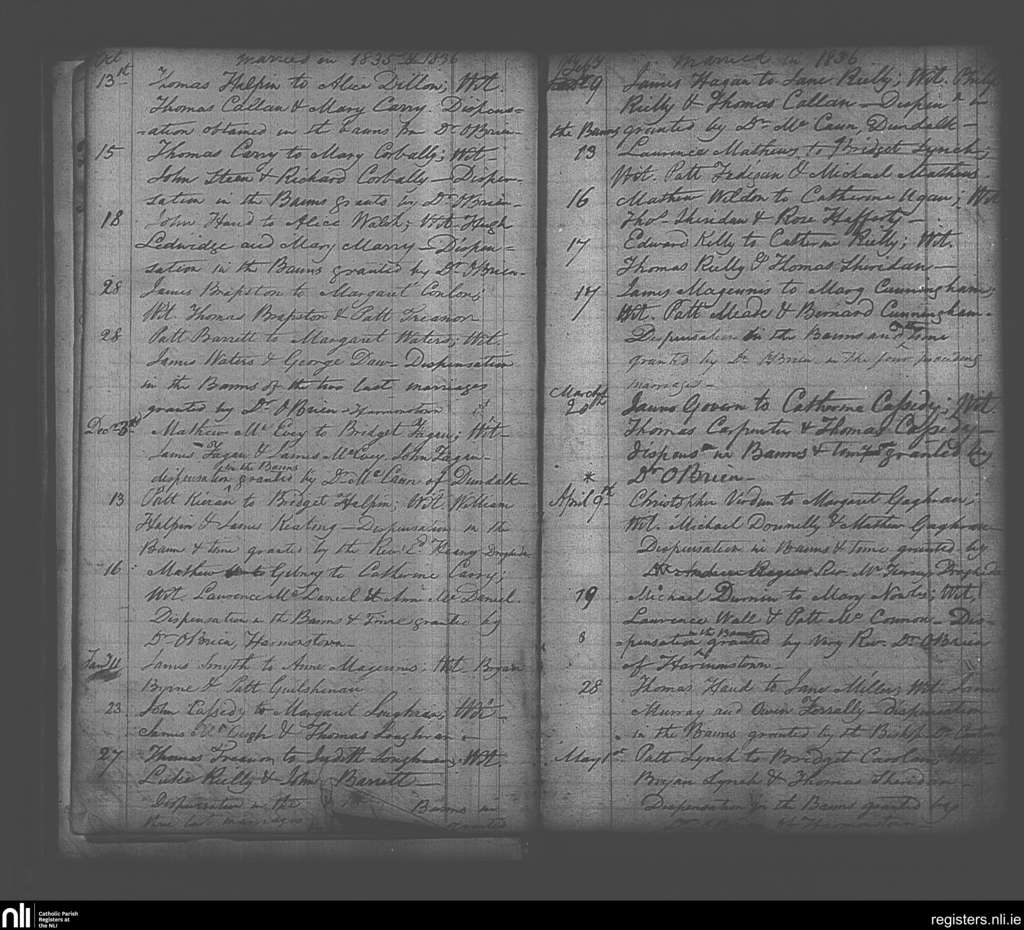 Oct Married in 1835 & 1836
13th Thomas Halpin to Alice Dillon; Wit.
Thomas Callan & Mary Carry. Dispens=
=ation obtained in the banns from Dr. OBrien
15 Thomas Carry to Mary Corbally; Wit-
John Steen & Richard Corbally - Dispen-
sation in the Banns grants by Dr. OBrien-
18 John Hand to Alice Walsh; Wit. Hugh
Ledwidge and Mary Marry - Dispen=
sation in the Banns granted by Dr. OBrien-
28 James Brapston to Margaret Conlon;
Wit. Thomas Brapston & Patt Treanor
28 Patt Barrett to Margaret Waters; Wit.
James Waters & George Daw- Dispensation
in the Banns of the two last marriages
granted by Dr. OBrien - Harmonstown
Decr 3rd Mathew Mc Evoy to Bridget Fagan; Wit-
James Fagan & James McEvoy John Fagan-
in the Banns
dispensation granted by Dr. Mc Cann of Dundalk-
13 Patt Kieran to Bridget Halpin; Wit. William
Halpin & James Keating - Dispensation in the
Banns & time granted by the Revd. Drogheda
16 Mathew Gilsey to Catherine Carry;
Wit. Lawrence Mc Daniel & Ann Mc Daniel.
Dispensation in the Banns & Time granted by
Dr. OBrien, Harmonstown-
Jany 11 James Smyth to Anne Magennis; Wit. Bryan
Byrne & Patt Guilshenan
23 John Cassedy to Margaret Loughran; Wit-
James & Thomas Loughran -
27 Thomas Treanor to Judith Loughran; Wit
Luke Reilly & John Barrett-
Dispensation in the Banns in
three last marriages granted
Married in 1836
Feby 9 James Hagan to Jane Reilly; Wit. Philip
Reilly & Thomas Callan - Dispenn in
the Banns granted by Dr. Mc Cann, Dundalk-
13 Laurence Mathews to Bridget Lynch;
Wit. Patt Fedigan & Michael Mathews.
16 Mathew Weldon to Catherine Agan; Wit
Thos. Sheridan & Rose Hafferty-
17 Edward Kelly to Catherine Reilly; Wit.
Thomas Reilly & Thomas Sheridan-
17 James Magennis to Mary Cunningham;
Wit. Patt Meade & Bernard Cunningham-
Dispensation in the Banns and Time
granted by Dr. OBrien in the four preceding
marriages-
March 20th James Govern to Catherine Cassedy; Wit
Thomas Carpenter & Thomas Cassedy-
Dispensn in Banns & time granted by
* Dr OBrien-
April 9th Christopher Verdun to Margaret Gaghran;
Wit. Michael Donnelly & Mathew Gaghran
Dispensation in Banns & time granted by
Rev. Mr Drogheda
19 Michael Durnin to Mary Neale; Wit,
Lawrence Wall & Patt Mc Connon - Dis-
in the Banns
8 pensation granted by Very Rev. Dr. OBrien
of Harmonstown-
28 Thomas Hand to Jane Miller; Wit. James
Murray and Owen Farrally - dispensation
in the Banns granted by the Bishop Dr.
May 1st Patt Lynch to Bridget Carolan; Wit-
Bryan Lynch & Thomas Sheridan-
Dispensation in the Banns granted by
Harmonstown-
nli Catholic Parish
Registers at
the NLI
registers.nli.ie